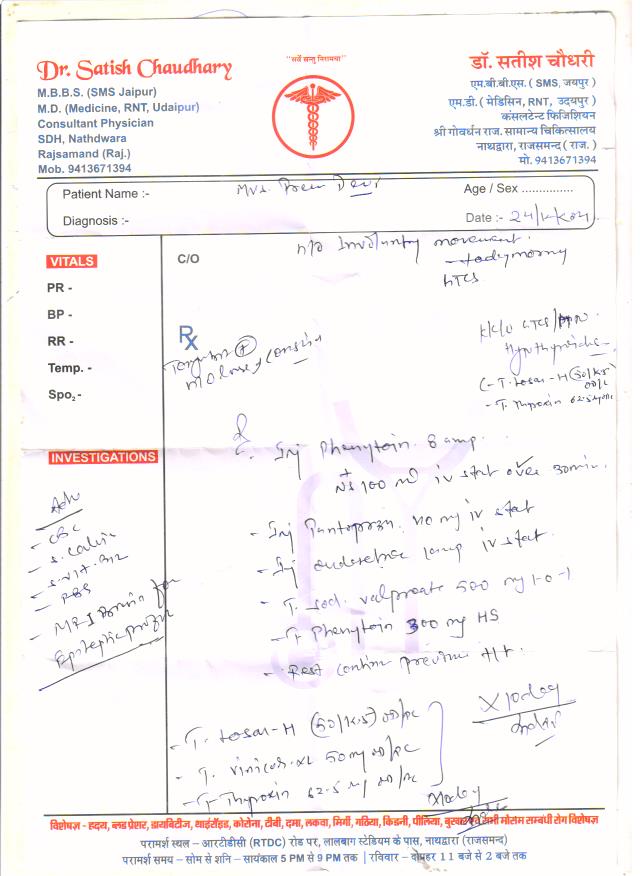 "सर्वे सन्तु निरामया"
Dr. Satish Chaudhary
M.B.B.S. (SMS Jaipur)
M.D. (Medicine, RNT, Udaipur)
Consultant Physician
SDH, Nathdwara
Rajsamand (Raj.)
Mob. 9413671394
डॉ. सतीश चौधरी
एम.बी.बी.एस. ( SMS, जयपुर )
एम.डी. ( मेडिसिन, RNT, उदयपुर )
कंसलटेन्ट फिजिशियन
श्री गोवर्धन राज. सामान्य चिकित्सालय
नाथद्वारा, राजसमन्द ( राज. )
मो. 9413671394
Patient Name :- Mrs. Devi
Age / Sex ...............
Diagnosis :-
Date :- 24/
VITALS
PR -
BP -
RR -
Temp. -
Spo2 -
C/O
h/o Involuntry movement
GTCS
Rx
K/C/O GTCS/HTN
- T. Losar-H (50/12.5)
- T. Thyroxin 62.5
Inj Phenytoin 8 amp.
NS 100 ml iv stat over 30 min.
- Inj Pantopraz 40 mg iv stat
- Inj 1amp iv stat.
- T. Sod. valproate 500 mg 1-0-1
- T Phenytoin 300 mg HS
- Rest continue previous
INVESTIGATIONS
Adv
- CBC
- S. Calcium
- S. Vit. B12
- RBS
- MRI Brain for
Epileptic protocol
- T. Losar-H (50/12.5) OD/PC
- T. 50 mg OD/PC
- T Thyroxin 62.5 mg OD/AC
X 10 day
X 10 day
विशेषज्ञ - हृदय, ब्लड प्रेशर, डायबिटीज, थाईरॉइड, कोरोना, टीबी, दमा, लकवा, मिर्गी, गठिया, किडनी, पीलिया, बुखार एवं सभी मौसम सम्बंधी रोग विशेषज्ञ
परामर्श स्थल – आरटीडीसी (RTDC) रोड पर, लालबाग स्टेडियम के पास, नाथद्वारा (राजसमन्द)
परामर्श समय – सोम से शनि – सायंकाल 5 PM से 9 PM तक | रविवार – दोपहर 11 बजे से 2 बजे तक